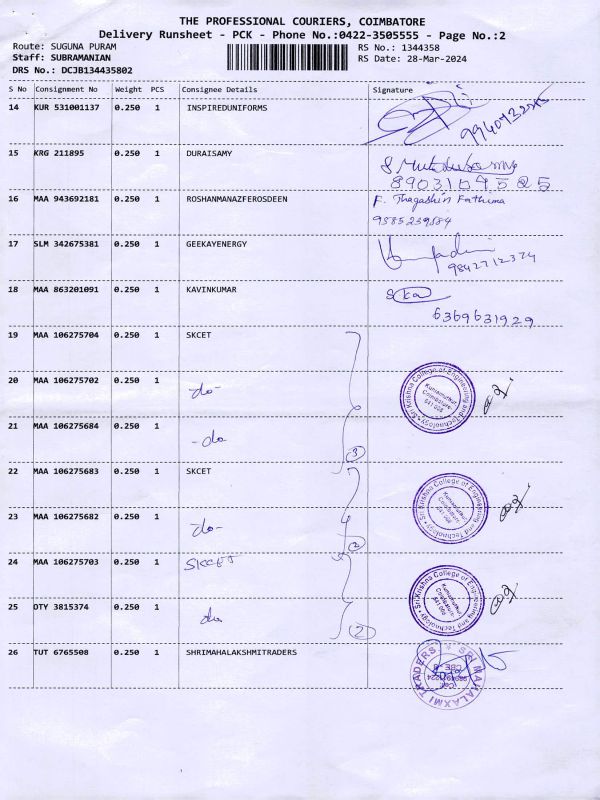 THE PROFESSIONAL COURIERS, COIMBATORE
Delivery Runsheet - PCK - Phone No.:0422-3505555 - Page No.:2
Route: SUGUNA PURAM RS No.: 1344358
Staff: SUBRAMANIAN RS Date: 28-Mar-2024
DRS No.: DCJB134435802
S No Consignment No Weight PCS Consignee Details Signature
14 KUR 531001137 0.250 1 INSPIREDUNIFORMS
15 KRG 211895 0.250 1 DURAISAMY
16 MAA 943692181 0.250 1 ROSHANMANAZFEROSDEEN F. Thagashin Fathima
9585239584
17 SLM 342675381 0.250 1 GEEKAYENERGY
9842712374
18 MAA 863201091 0.250 1 KAVINKUMAR
6369631929
19 MAA 106275704 0.250 1 SKCET
20 MAA 106275702 0.250 1 -do-
Sri Krishna College of Engineering and Technology
Kuniamuthur Coimbatore- 641 008
21 MAA 106275684 0.250 1 -do
3
22 MAA 106275683 0.250 1 SKCET
Sri Krishna College of Engineering and Technology
Kuniamuthur Coimbatore- 641 008
23 MAA 106275682 0.250 1 -do-
24 MAA 106275703 0.250 1 SKCET
Sri Krishna College of Engineering and Technology
Kuniamuthur Coimbatore- 641 008
25 DTY 3815374 0.250 1 do
2
26 TUT 6765508 0.250 1 SHRIMAHALAKSHMITRADERS
SRI MAHALAXMI TRADERS